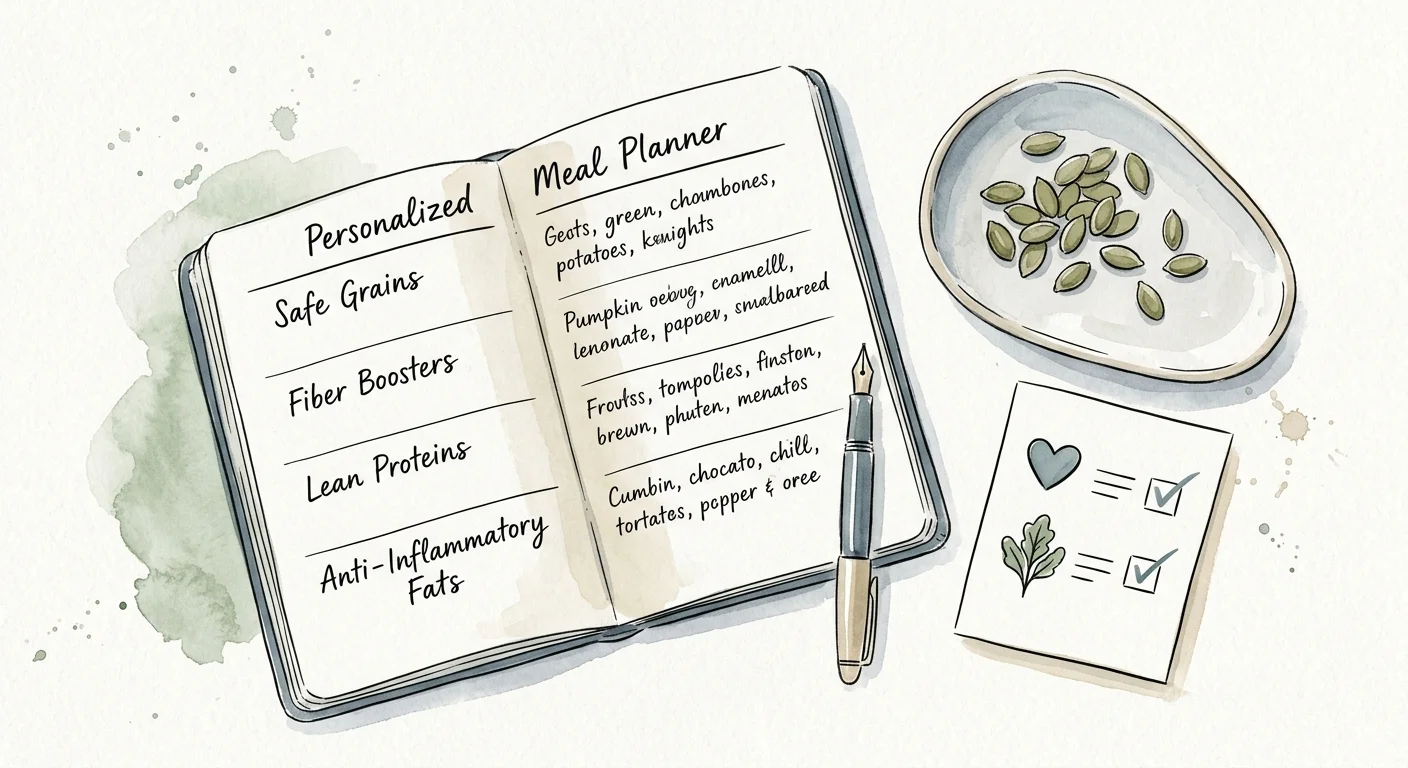 Personalized
Safe Grains
Fiber Boosters
Lean Proteins
Anti-Inflammatory
Fats
Meal Planner
Geots, green, choumbones,
potatoes,
Pumpkin enamelll,
lenonate, papoer, smalbareed
tompolies, finston,
brewn, phuten, menatos
Cumbin, chocato, chill,
tortates, popper & oree